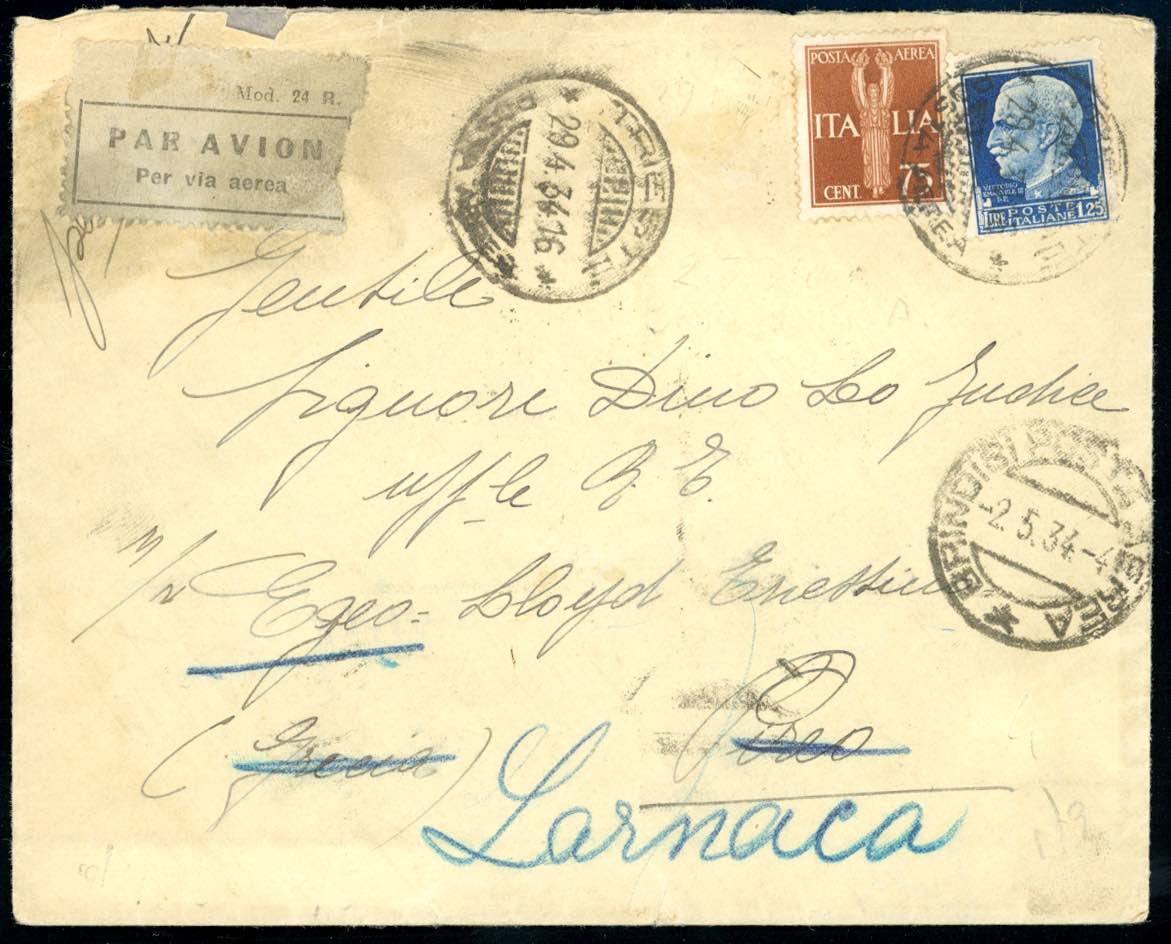 Mod. 24 R.
PAR AVION
Per via aerea
POSTA AEREA
ITALIA
CENT. 75
VITTORIO
EMANUELE III
LIRE POSTE ITALIANE 1.25
TRIESTE
29.4.34.16
29.4
Gentile
Signore Dino Lo Judice
uff-le R. T.
m/n Egeo - Lloyd Triestino
Pireo
(Grecia)
Larnaca
BRINDISI POSTA AEREA
-2.5.34.-4